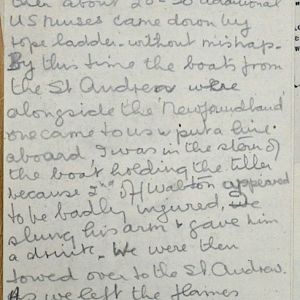 then about 20-30 additional
US nurses came down by
rope ladder - without mishap.
By this time the boats from
the St Andrew were
alongside the 'Newfoundland'
one came to us & put a line
aboard, I was in the stern of
the boat holding the tiller
because 2nd Walton appeared
to be badly injured, we
slung his arm & gave him
a drink. We were then
towed over to the St Andrew.
As we left the flames